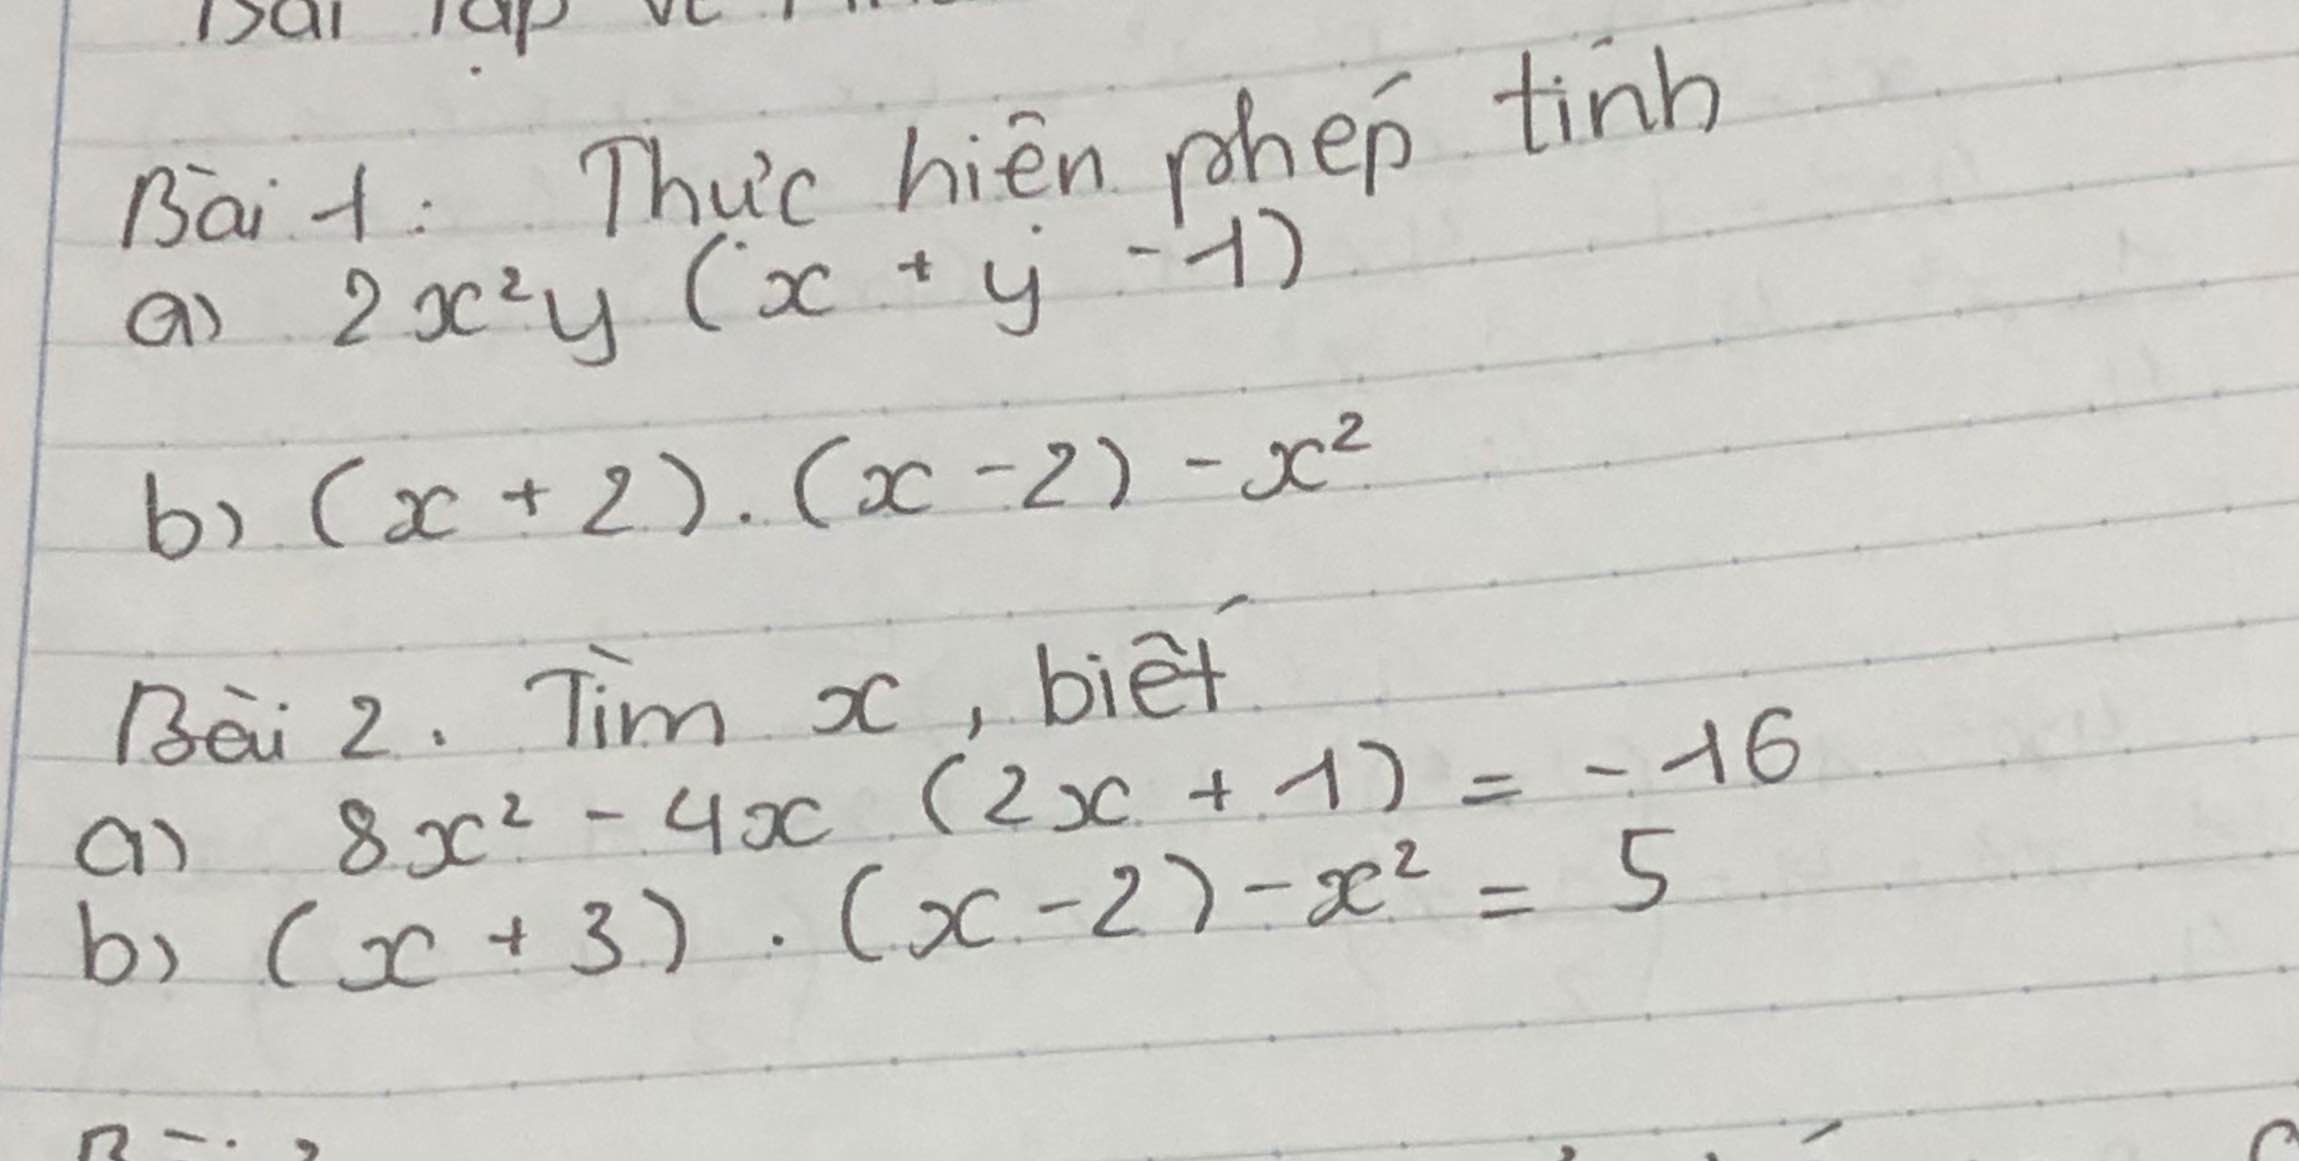 Bài tập về
Bài 1: Thực hiện phép tính
a) 2x²y (x + y - 1)
b) (x + 2) . (x - 2) - x²
Bài 2. Tìm x, biết
a) 8x² - 4x (2x + 1) = -16
b) (x + 3) . (x - 2) - x² = 5